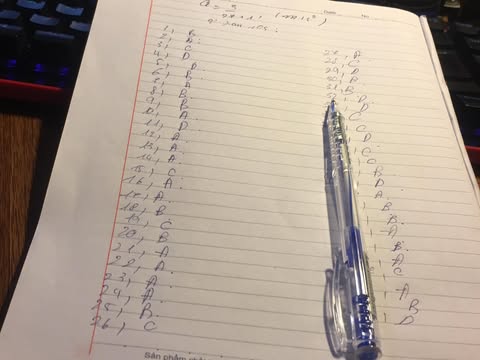 1, B
2, D.
3, C
4, D
5, D
6, B.
7, A
8, B
9, B
10, A
11, D
12, A.
13, A.
14, A.
15, C
16, A.
17, A.
18, B
19, C
20, B
21, A
22, A
23, A.
24, A.
25, B.
26, C
27, A.
28, C
29, B
30, B
31, B.
B.
D
C
C
D
C
C
B
D
A.
B
B.
A
B.
A
C
A
B
D
Sản phẩm